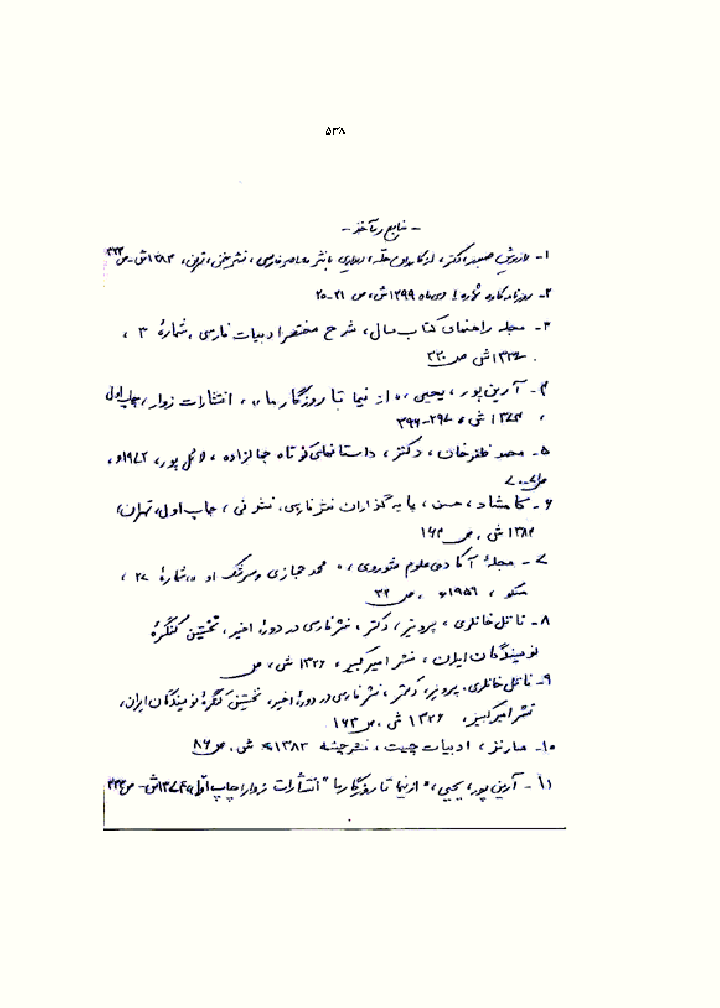 ۵۳۸
- منابع و مآخذ -
۱- دکتر، نشر، تهران، ۱۳۸۳ش - ص ۳۲۳
۲- روزنامه کاوه شماره ۱ دی ماه ۱۳۹۹ ش، ص ۳۱-۳۵
۳- مجله راهنمای کتاب سال، شرح مختصر ادبیات فارسی، شمارهٔ ۳،
ش ص ۳۲۰
۴- آرین پور، یحیی، از نیما تا روزگار ما، انتشارات زوار، چاپ اول
، ۱۳۷۴ ش، ۲۹۷-۳۹۶
۵- محمد ظفرخان، دکتر، داستانهای کوتاه جمالزاده، لائل پور، ۱۹۷۲ء،
ص
۶- کامشاد، حسن، پایه گذاران نثر فارسی، نشر نی، چاپ اول، تهران،
۱۳۸۴ ش، ص ۱۶۴
۷- مجلهٔ آکادمی علوم شوروی، محمد حجازی و سرشک او، شمارهٔ ۲۷،
مسکو، ۱۹۵۶ء، ص ۳۴
۸- ناتل خانلری، پرویز، دکتر، نثر فارسی در دورهٔ اخیر، نخستین کنگرهٔ
نویسندگان ایران، نشر امیر کبیر، ۱۳۲۶ ش، ص
۹- ناتل خانلری، پرویز، دکتر، نثر فارسی در دورهٔ اخیر، نخستین کنگرهٔ نویسندگان ایران،
نشر امیر کبیر، ۱۳۲۶ ش، ص ۱۶۳
۱۰- سارتر، ادبیات چیست، نشر چشمه ۱۳۸۳ ش. ص ۸۶
۱۱- آرین پور، یحیی، "از نیما تا روزگار ما" انتشارات زوار، چاپ اول، ۱۳۷۴ش - ص ۳۳۴